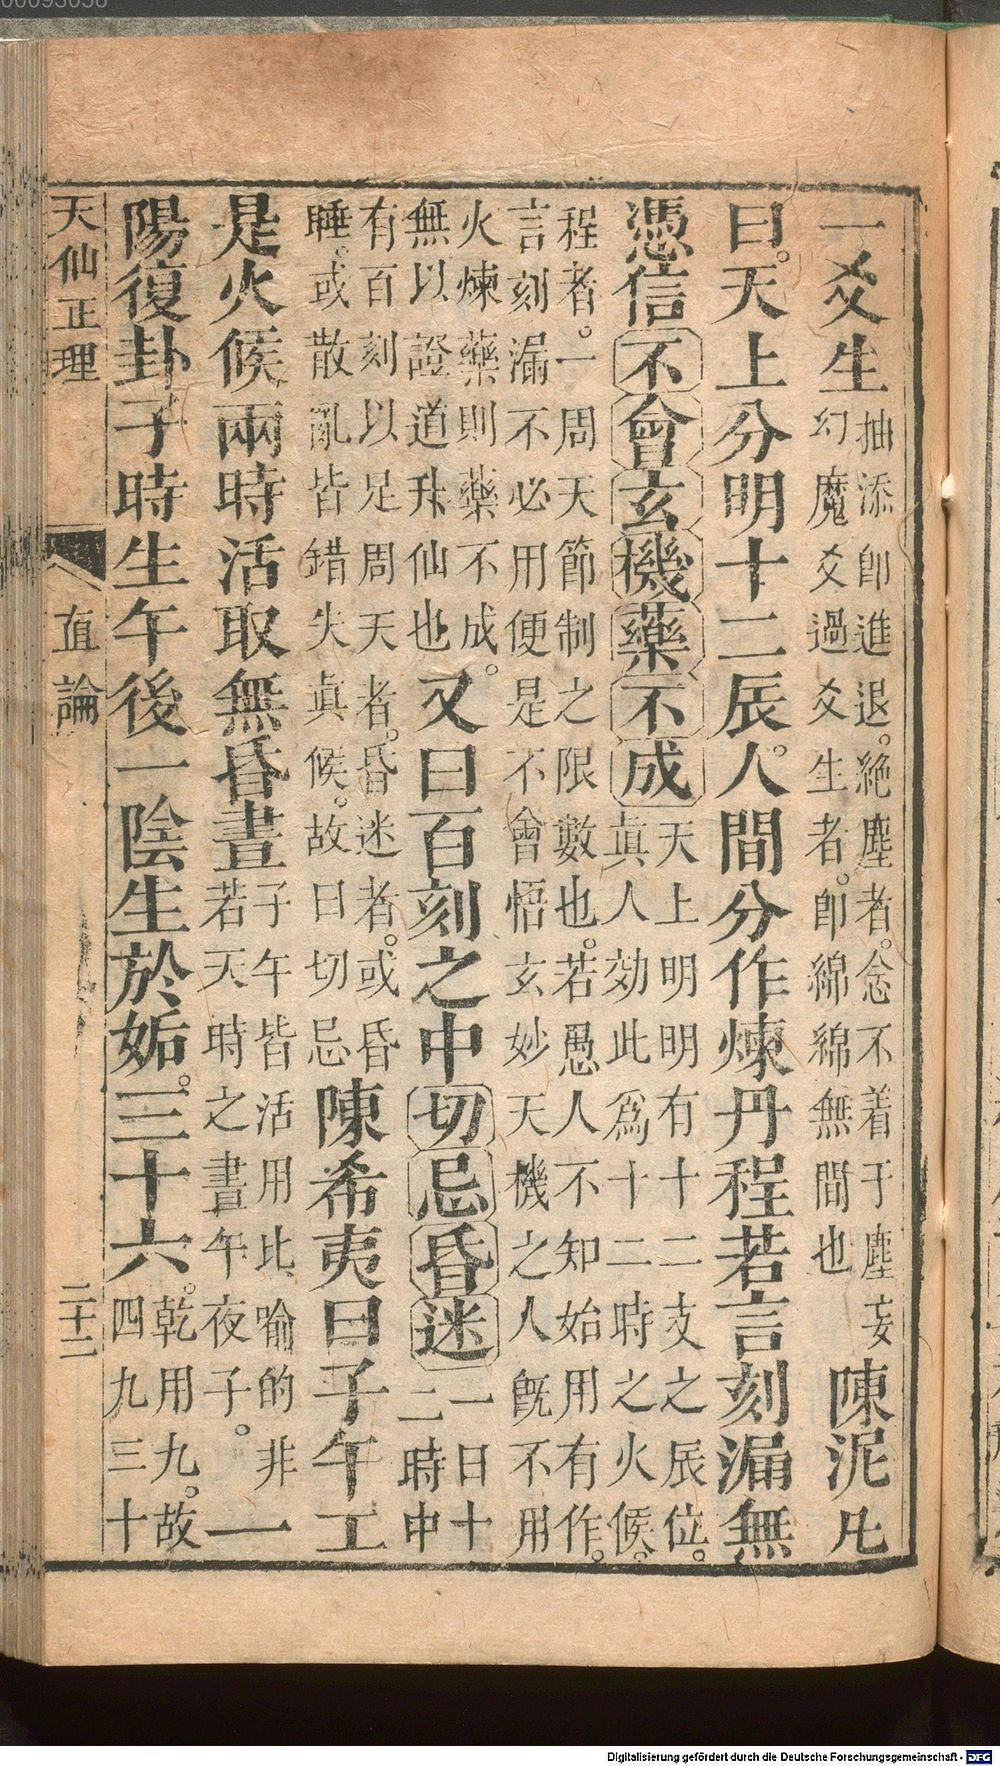 一爻生抽添卽進退。絶塵者。念不着于塵妄幻魔爻過爻生者。卽綿綿無間也陳泥凡
曰。天上分明十二辰。人間分作煉丹程若言刻漏無
憑信不會玄機藥不成天上明明有十二支之辰位。眞人効此爲十二時之火候。
程者。一周天節制之限數也。若愚人不知始用有作。言刻漏不必用便是不會悟玄妙天機之人旣不用
火煉藥則藥不成。無以證道升仙也又曰百刻之中切忌昏迷一日十二時中
有百刻以足周天者。昏迷者。或昏睡。或散亂皆錯失眞候。故曰切忌陳希夷曰子午工
是火候兩時活取無昏晝子午皆活用比喻的非若天時之晝午夜子。一
陽復卦子時生午後一陰生於姤。三十六。乾用九。故四九三十
天仙正理 直論 二十二
00093058
Digitalisierung gefördert durch die Deutsche Forschungsgemeinschaft - DFG